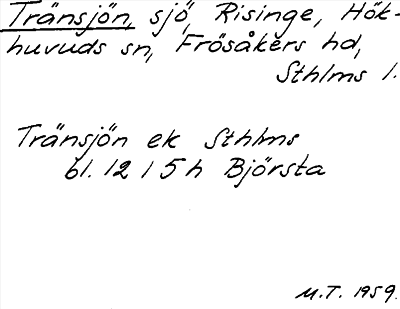 Tränsjön, sjö, Risinge, Hök-
huvuds sn, Frösåkers hd,
Sthlms l.
Tränsjön ek Sthlms
bl. 12 I 5 h Björsta
M.T. 1959.